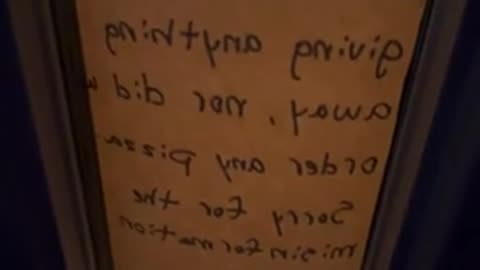 giving anything
away, nor did
order any pizza.
Sorry for the
misinformation